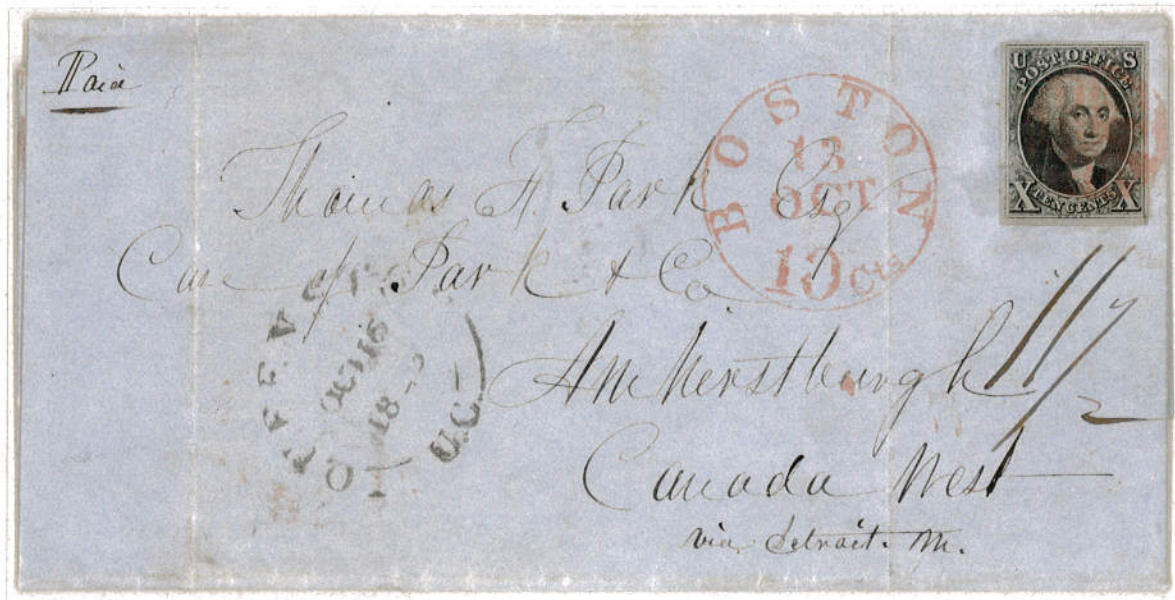 Paid
U S
POST OFFICE
X TEN CENTS X
BOSTON
13
OCT
10 Cts
Thomas F. Park Esq
Care of Park & Co
Amherstburgh
Canada West
via Detroit. M.
11 1/2
QUEENSTON
OC 16
18
U.C.